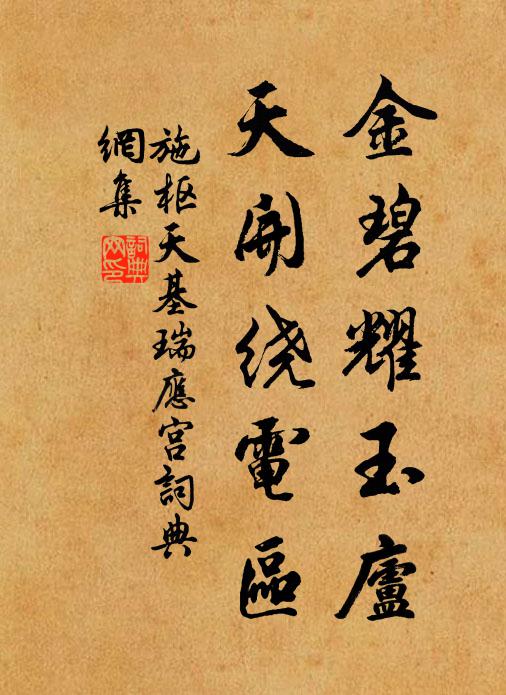 金碧耀玉廬
天開绕電區
施枢天基瑞應宫詞典
網集
詞典
网印